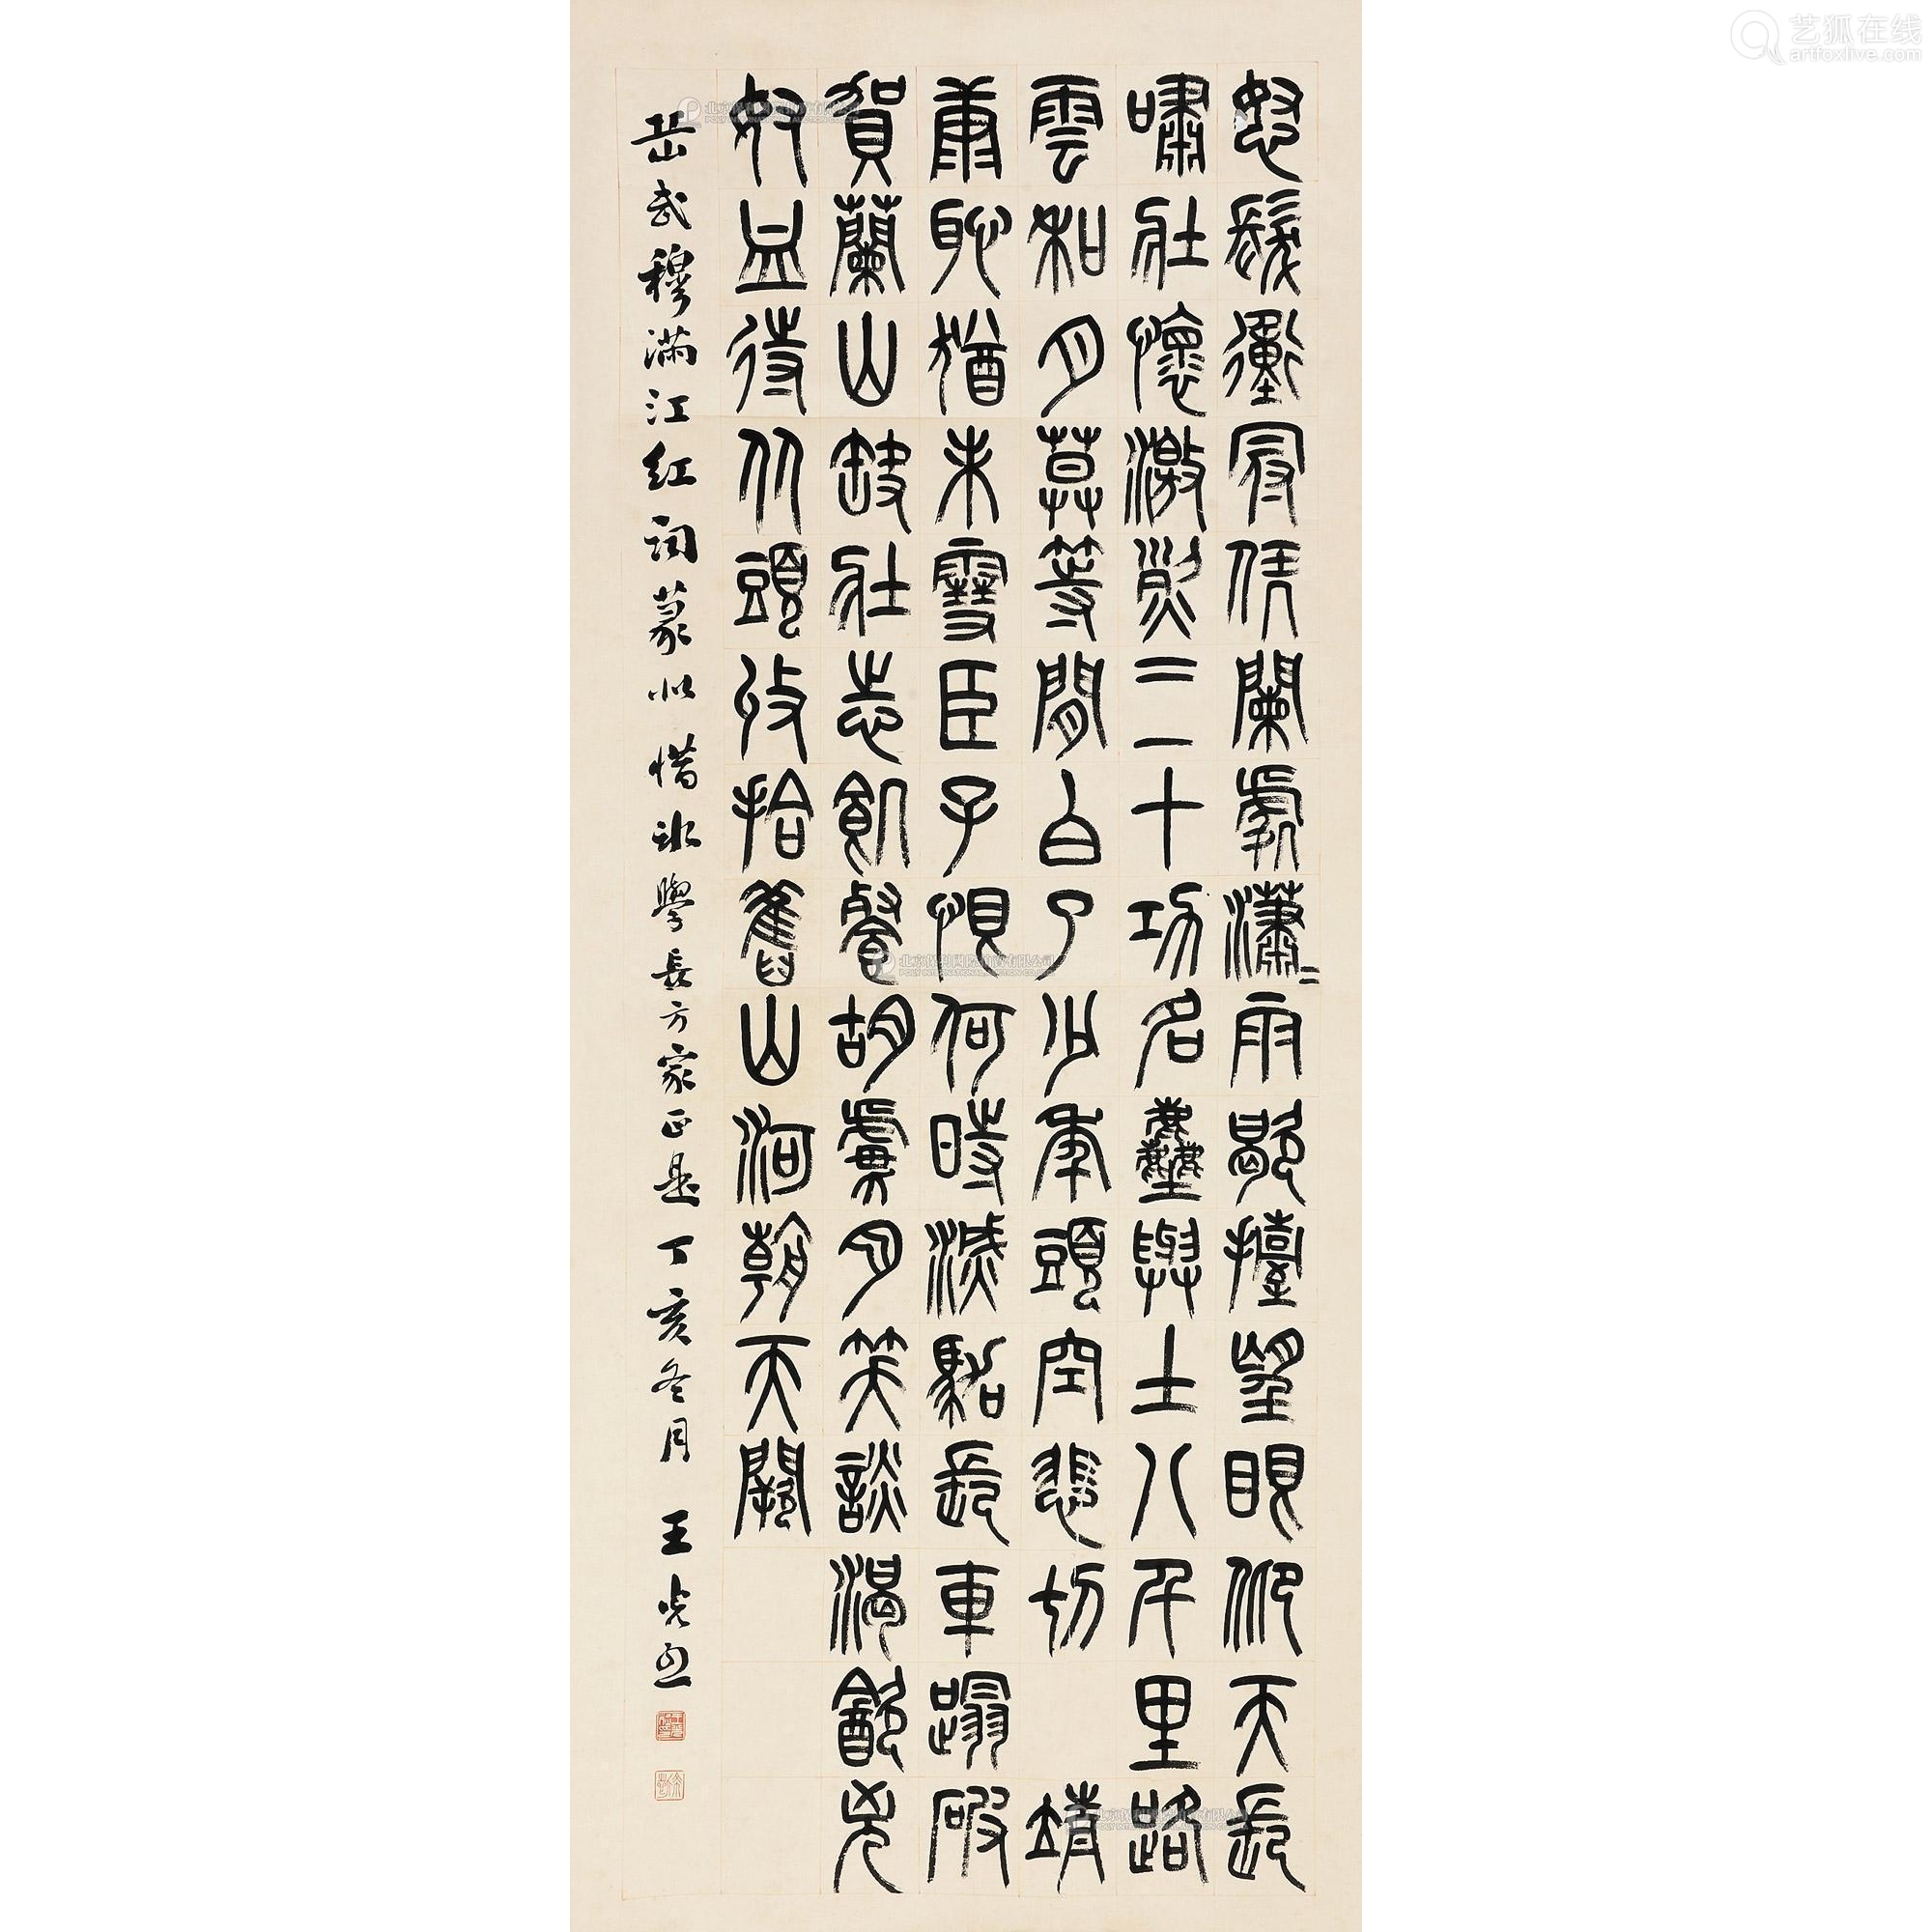 怒髮衝冠凭闌處瀟=雨歇擡望眼仰天長
嘯壯懷激烈三十功名塵與土八千里路
雲和月莫等閒白了少年頭空悲切 靖
康恥猶未雪臣子恨何時滅駕長車蹋破
賀蘭山缺壯志飢餐胡虜肉笑談渴飲匈
奴血待从頭收拾舊山河朝天闕
岳武穆滿江红詞篆似惜冰學長方家正是丁亥冬月 王光烈
艺狐在线
artfoxlive.com